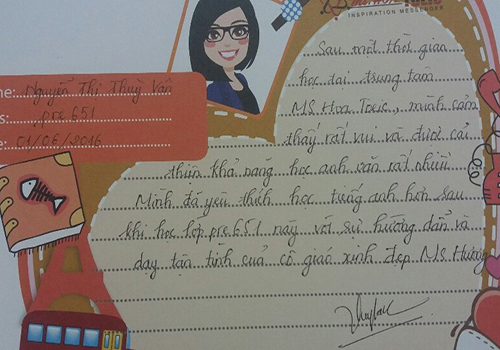 INSPIRATION MESSENGER
Sau một thời gian
học tại trung tâm
MS Hoa Toeic, mình cảm
thấy rất vui và được cải
thiện khả năng học anh văn rất nhiều
Mình đã yêu thích học tiếng anh hơn sau
khi học lớp pre 651 này với sự hướng dẫn và
dạy tận tình của cô giáo xinh đẹp MS Hương
me: Nguyễn Thị Thuỳ Vân
s: pre 651
e: 01/06/2016